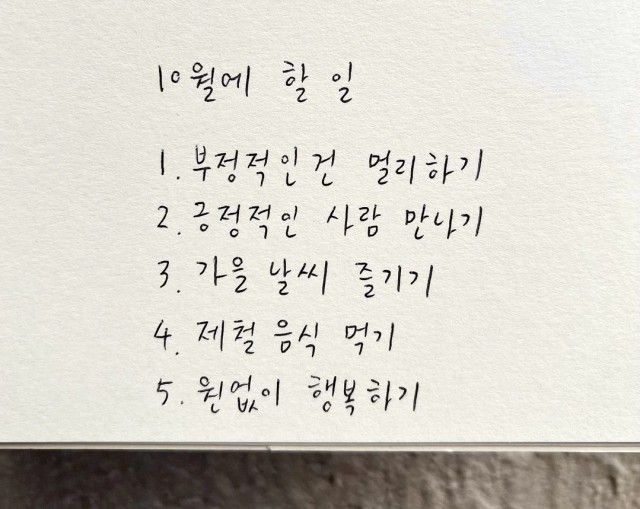 10월에 할 일
1. 부정적인건 멀리하기
2. 긍정적인 사람 만나기
3. 가을 날씨 즐기기
4. 제철 음식 먹기
5. 원없이 행복하기